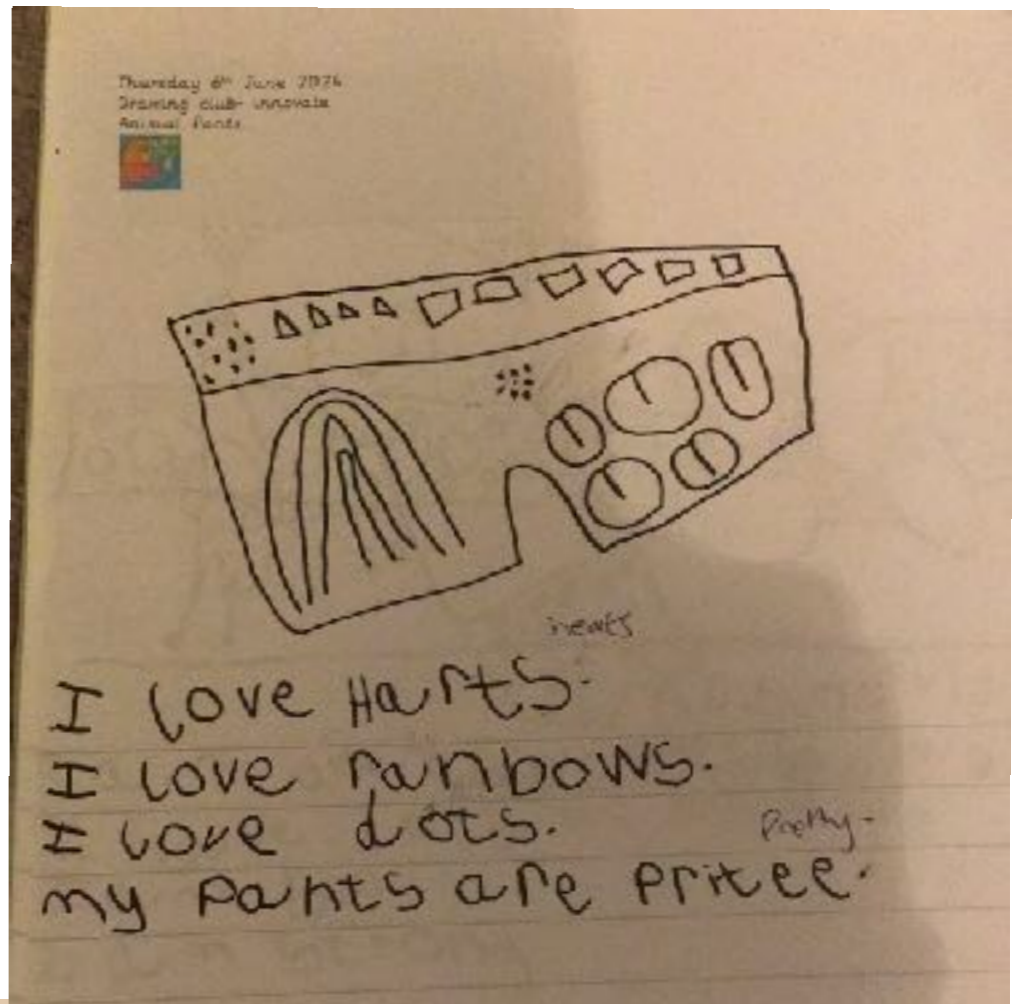 Thursday 6th June 2024
Drawing club- innovate
Animal Pants
hearts
I love Harts.
I love ranbows.
I love dots.
Pretty
my pants are pritee.